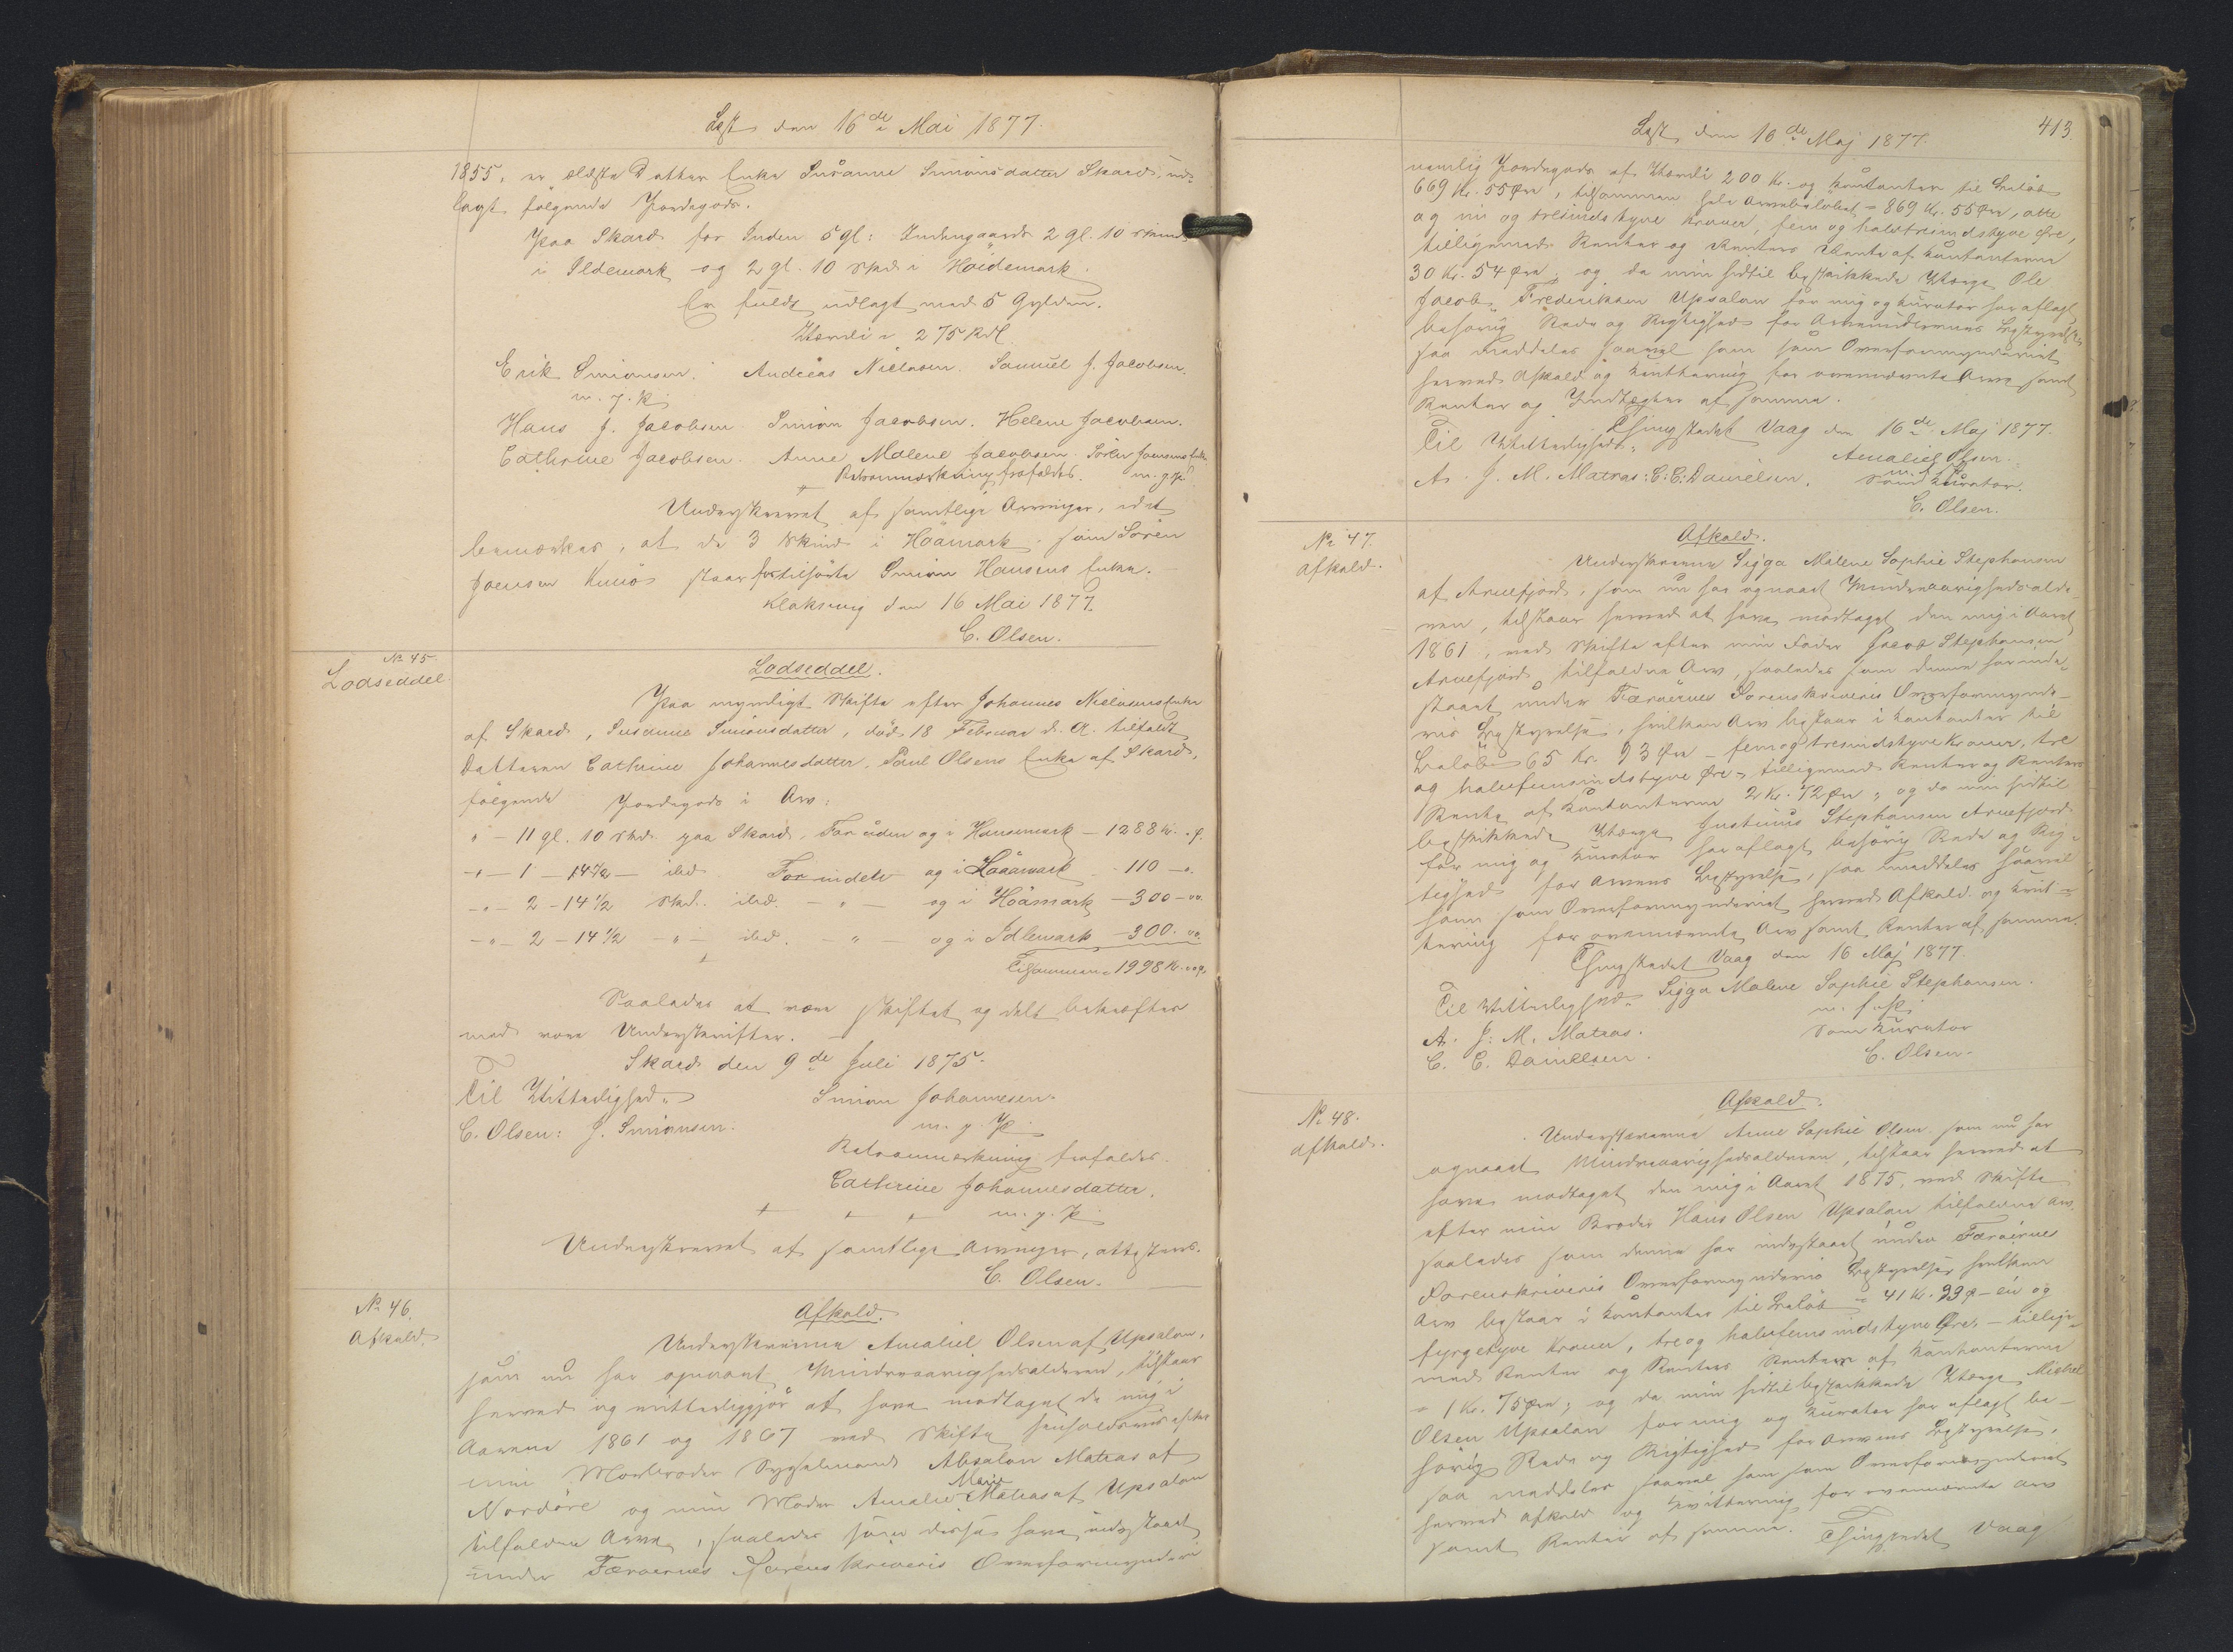 Læst den 16de Mai 1877.
1855, er ældste Datter Enke Susanne Simonsdatter Skaard, ud-
lagt følgende Jordegods.
Paa Skard for Inden 5 gl: Indengaards 2 gl. 10 Skind
i Ildemark og 2 gl. 10 Skd i Høidemark.
Er fuldt udlagt med 5 Gylden.
Værdi = 275 Rdl.
Erik Simonsen. Andreas Nielsen. Samuel J. Jacobsen.
m. f. P.
Hans J. Jacobsen. Simon Jacobsen. Helene Jacobsen.
Cathrine Jacobsen. Anne Malene Jacobsen. Sören Joensens Enke
Retsanmærkning frafaldes. m. f. P.
Underskrevet af samtlige Arvinger, idet
bemærkes, at de 3 Skind i Höamark som Sören
Joensen Kunö staar for tilhörte Simon Hansens Enke.
Klaksvig den 16 Mai 1877.
C. Olsen.
No 45.
Lodseddel
Lodseddel.
Paa myndigt Skifte efter Johannes Nielsens Enke
af Skard, Susanne Simonsdatter, död 18 Februar d. A. tilfaldt
Datteren Cathrine Johannesdatter, Poul Olsens Enke af Skard,
følgende Jordegods i Arv:
" - 11 gl. 10 Skd. paa Skard, For uden og i Hansemark - 1288 Kr. " Ø.
-"- 1 - 14½ - ibd. For inden og i Höamark - 110 - "
-"- 2 - 14½ Skd. ibd. - " - og i Höamark - 300 - "
-"- 2 - 14½ - " - ibd. - " - og i Idlemark - 300. "
Tilsammen = 1998 Kr. " Ø.
Saaledes at være skiftet og delt bekræftes
med vore Underskrifter.
Skard den 9de Juli 1875.
Til Vitterlighed: Simon Johannesen.
C. Olsen: J. Simonsen. m. f. P.
Retsanmærkning frafaldes.
Cathrine Johannesdatter.
m. f. P.
Underskrevet af samtlige Arvinger, attesteres.
C. Olsen.
No 46.
Afkald.
Afkald.
Underskrevne Amaliel Olsen af Upsalon,
som nu har opnaaet Mindreaarighedsalderen, tilstaar
herved og vitterliggjör at have modtaget de mig i
Aarene 1861 og 1867 ved Skifte henholdsvis efter
min Morbroder Sysselmand Absalon Matras af
Nordöre og min Moder Amalie Marie Matras af Upsalon
tilfaldne Arve, saaledes som disse have indestaaet
under Færøernes Sorenskriveris Overformynderi
413
Læst den 16de Maj 1877.
nemlig Jordegods af Værdi 200 Kr. og Kontanter til Beløb
669 Kr. 55 Øre, tilsammen hele Arvebeløbet = 869 Kr. 55 Øre, otte
og ni og tresindstyve Kroner, fem og halvtresindstyve Øre,
tilligemed Renter og Renters Rente af Kontanterne
30 Kr. 54 Øre; og da min hidtil beskikkede Værge Ole
Jacob Frederiksen Upsalon for mig og Kurator har aflagt
behørig Rede og Rigtighed for Arvemidlernes Bestyrelse
saa meddeles saavel ham som Overformynderiet
herved Afkald og Kvittering for ovennævnte Arve samt
Renter og Indtægter af samme.
Thingstedet Vaag den 16de Maj 1877.
Til Vitterlighed: Amaliel Olsen.
m. f. P.
A. J. M. Matras: C. C. Danielsen. som Kurator.
C. Olsen.
No 47.
Afkald.
Afkald.
Underskrevne Sigga Malene Sophie Stephansen
af Arnefjord, som nu har opnaaet Mindreaarighedsalde-
ren, tilstaar herved at have modtaget den mig i Aaret
1861, ved Skifte efter min Fader Jacob Stephansen
Arnefjord tilfaldne Arv, saaledes som denne har inde-
staaet under Færøernes Sorenskriveris Overformynde-
ris Bestyrelse, hvilken Arv bestaar i Kontanter til
Beløb 65 Kr. 93 Øre - fem og tresindstyve Kroner, tre
og halvfemsindstyve Øre - tilligemed Renter og Renters
Rente af Kontanterne 2 Kr. 72 Øre; og da min hidtil
beskikkede Værge Justinus Stephansen Arnefjord
for mig og Kurator har aflagt behørig Rede og Rig-
tighed for Arvens Bestyrelse, saa meddeles saavel
ham som Overformynderiet herved Afkald og Kvit-
tering for ovennævnte Arv samt Renter af samme.
Thingstedet Vaag den 16 Maj 1877.
Til Vitterlighed: Sigga Malene Sophie Stephansen.
m. f. P.
A. J. M. Matras. som Kurator
C. C. Danielsen. C. Olsen.
No 48.
Afkald.
Afkald.
Underskrevne Anne Sophie Olsen som nu har
opnaaet Mindreaarighedsalderen, tilstaar herved at
have modtaget den mig i Aaret 1875, ved Skifte
efter min Broder Hans Olsen Upsalon tilfaldne Arv,
saaledes som denne har indestaaet under Færøernes
Sorenskriveris Overformynderis Bestyrelse, hvilken
Arv bestaar i Kontanter til Beløb = 41 Kr. 93 Ø - en og
fyrgetyve Kroner, tre og halvfemsindstyve Øre, - tillige-
med Renter og Renters Renter af Kontanterne
= 1 Kr. 75 Øre; og da min hidtil beskikkede Værge Michel
Olsen Upsalon for mig og Kurator har aflagt be-
hørig Rede og Rigtighed for Arvens Bestyrelse,
saa meddeles saavel ham som Overformynderiet
herved Afkald og Kvittering for ovennævnte Arv
samt Renter af samme. Thingstedet Vaag